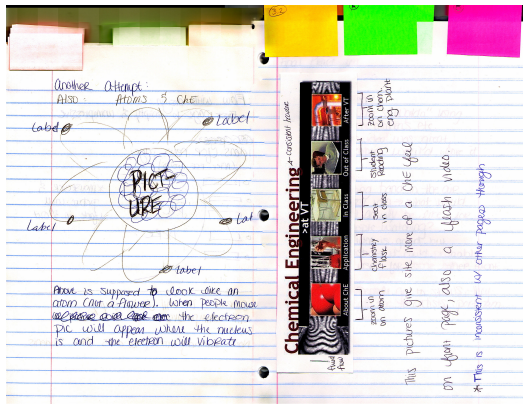 another attempt:
Also: Atoms & ChE
Label
Label
PICT-
URE
Label
Label
Label
Above is supposed to look like an
atom (not a flower). When people mouse
the electron
pic will appear where the nucleus
is and the electron will vibrate
Chemical Engineering
>at VT
About ChE
Application
In Class
Out of Class
After VT
zoom in
on atom
chemistry
flask
Seat
in class
Student
Reading
zoom in
on chem.
eng. plant
fluid
flow
This pictures give site more of a ChE feel
on front page, also a flash video
*This is inconsistent w/ other pages though